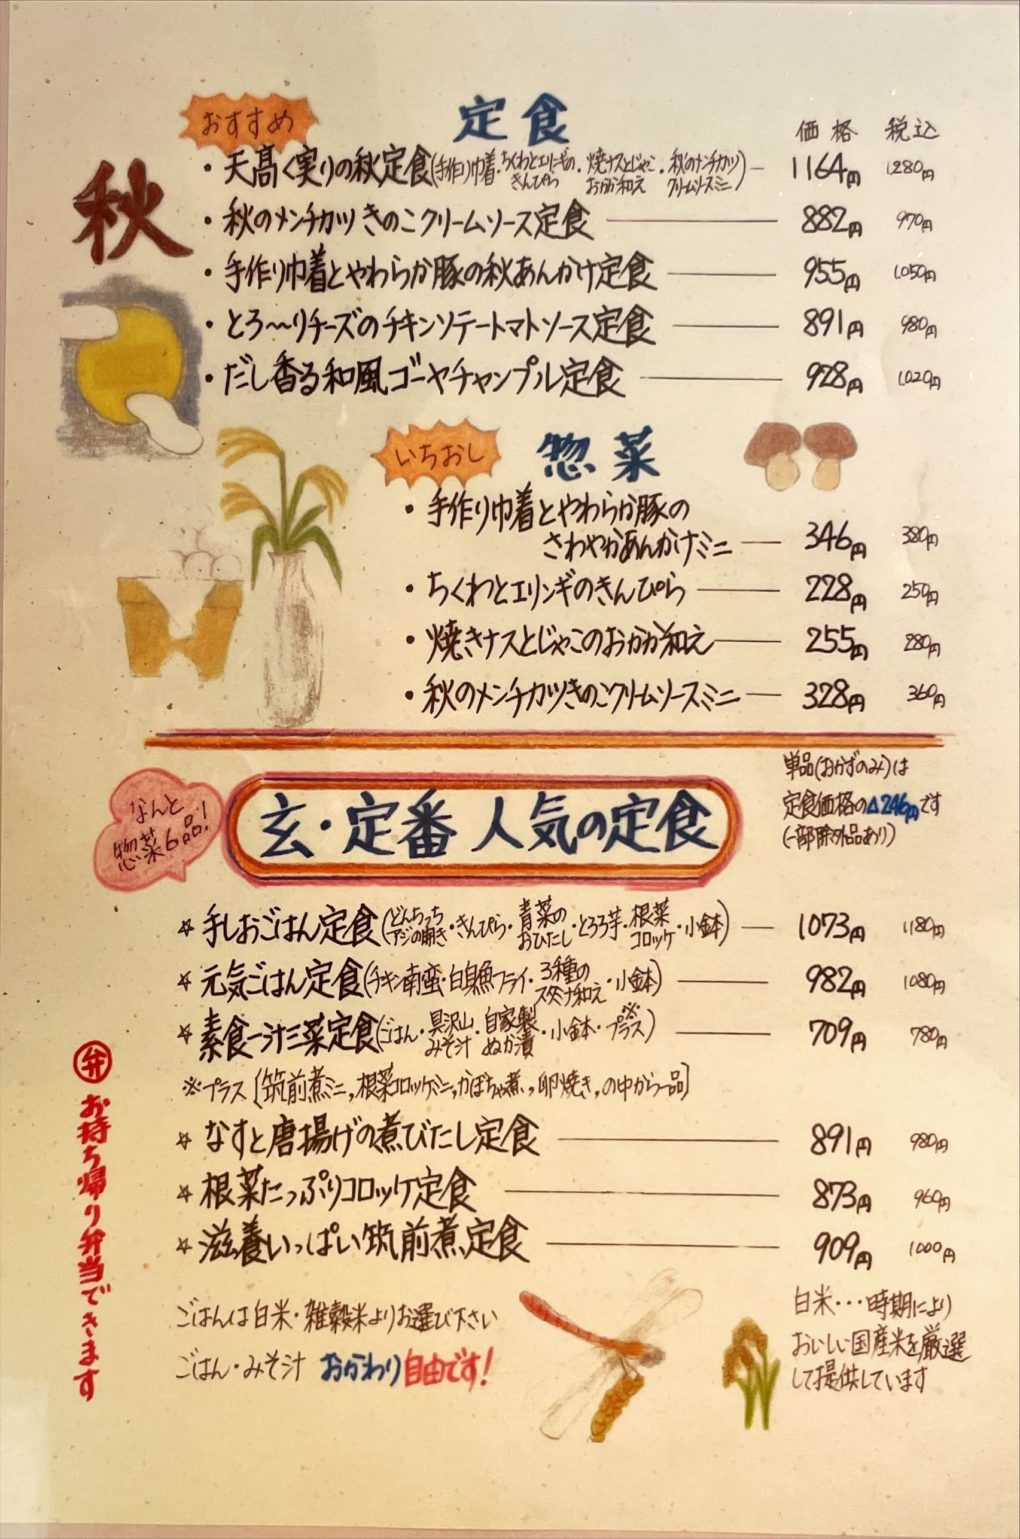 おすすめ
定食
価格 税込
秋
・天高く実りの秋定食(手作り巾着・ちくわとエリンギのきんぴら・焼ナスとじゃこおかか和え・秋のメンチカツクリームソースミニ) 1164円 1,280円
・秋のメンチカツきのこクリームソース定食 882円 970円
・手作り巾着とやわらか豚の秋あんかけ定食 955円 1,050円
・とろ〜りチーズのチキンソテートマトソース定食 891円 980円
・だし香る和風ゴーヤチャンプル定食 928円 1,020円
いちおし
惣菜
・手作り巾着とやわらか豚の
さわやかあんかけミニ 346円 380円
・ちくわとエリンギのきんぴら 228円 250円
・焼きナスとじゃこのおかか和え 255円 280円
・秋のメンチカツきのこクリームソースミニ 328円 360円
単品(おかずのみ)は
定食価格の△246円です
(一部除外品あり)
なんと
惣菜6品!
玄・定番 人気の定食
☆手しおごはん定食(どんちっちアジの開き・きんぴら・青菜のおひたし・とろろ芋・根菜コロッケ・小鉢) 1073円 1180円
☆元気ごはん定食(チキン南蛮・白身魚フライ・3種のスタミナ和え・小鉢) 982円 1080円
☆素食一汁三菜定食(ごはん・具沢山みそ汁・自家製ぬか漬・小鉢・※プラス) 709円 780円
※プラス[筑前煮ミニ,,根菜コロッケミニ,,かぼちゃ煮,,卵焼き,,の中から一品]
☆なすと唐揚げの煮びたし定食 891円 980円
☆根菜たっぷりコロッケ定食 873円 960円
☆滋養いっぱい筑前煮定食 909円 1000円
弁 お持ち帰り弁当できます
ごはんは白米・雑穀米よりお選び下さい
ごはん・みそ汁 おかわり自由です!
白米・・・時期により
おいしい国産米を厳選
して提供しています